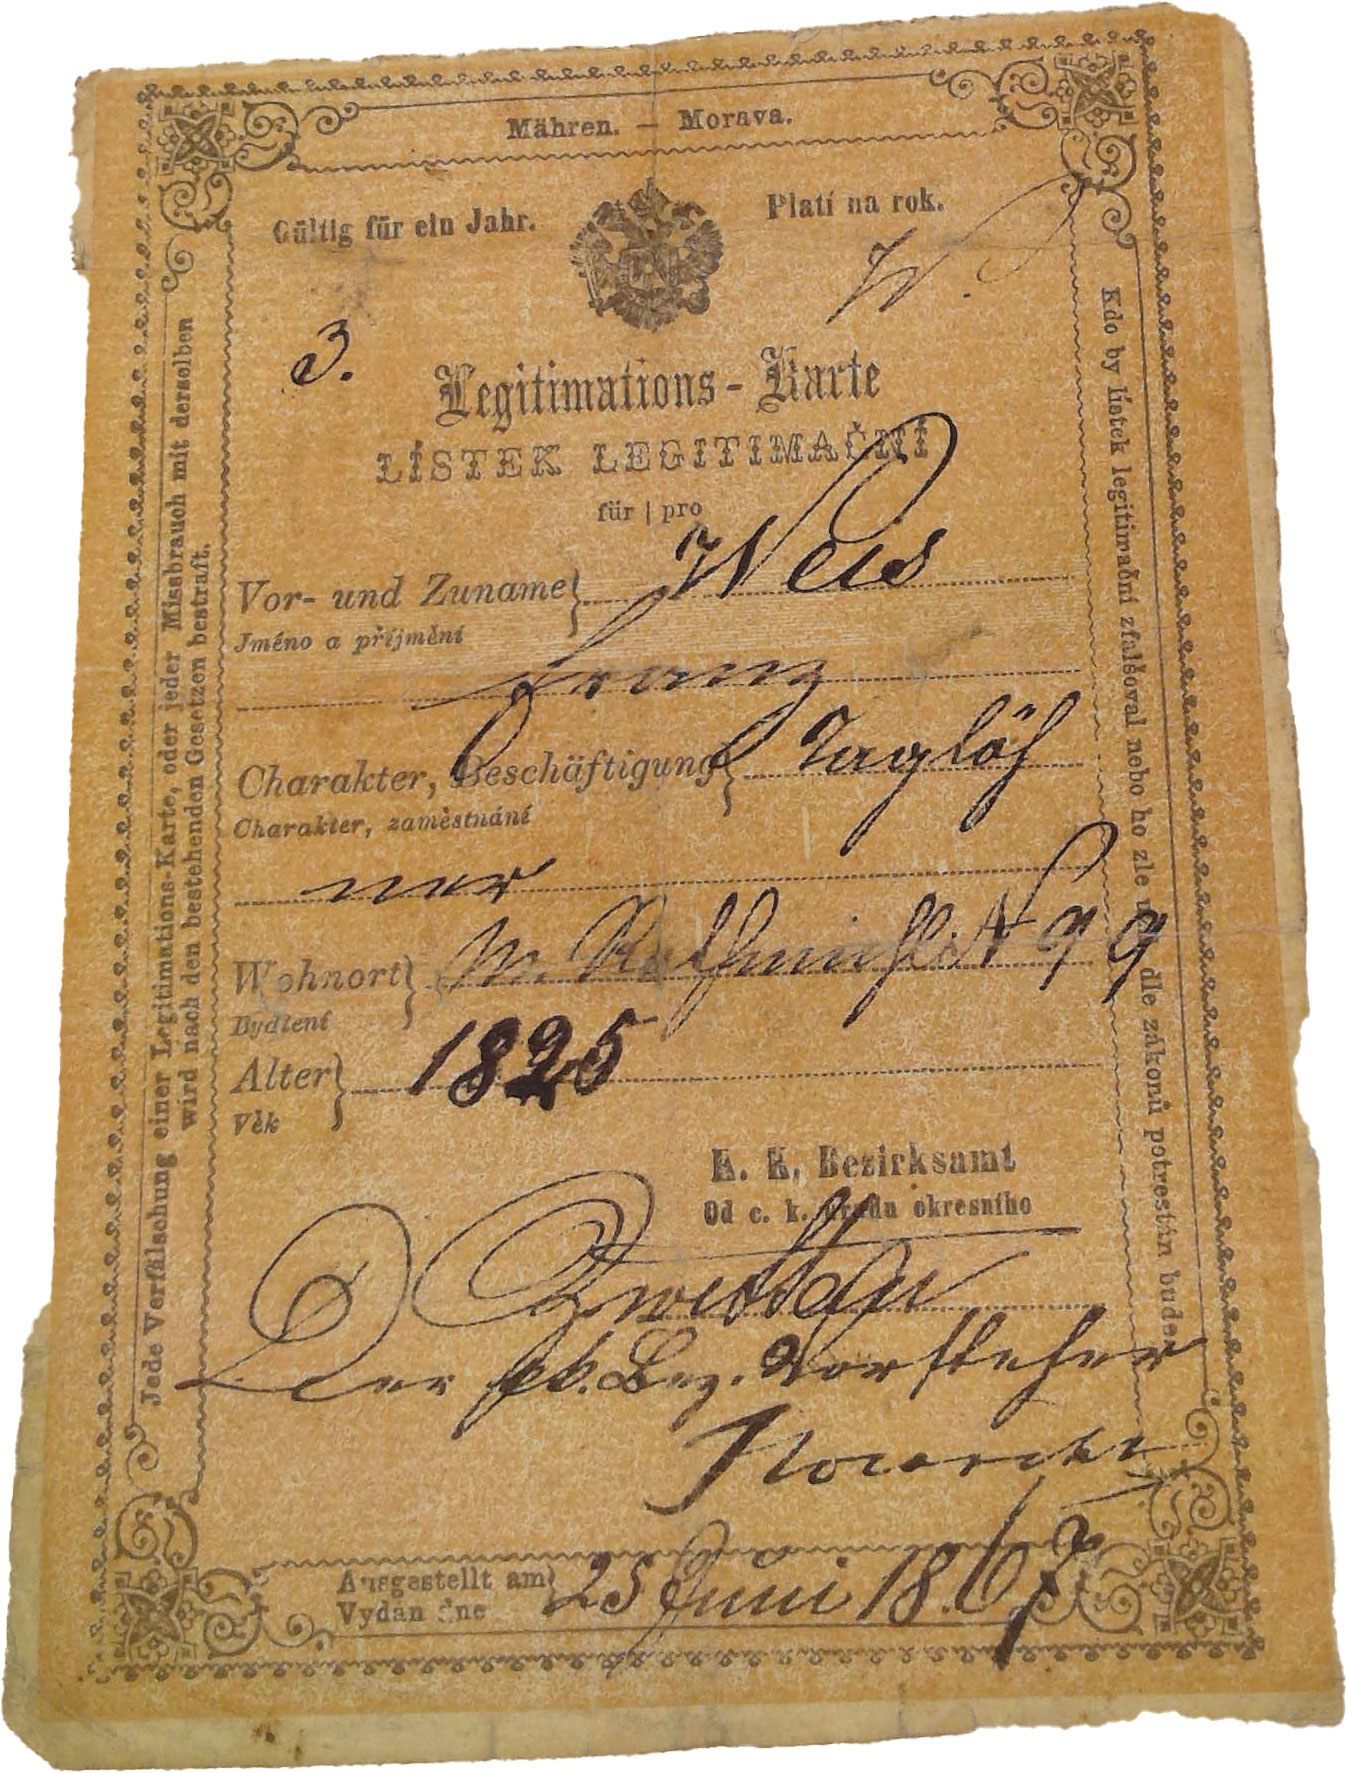 Mähren. — Morava.
Gültig für ein Jahr.
Platí na rok.
W.
3.
Legitimations-Karte
LÍSTEK LEGITIMAČNÍ
für | pro
Vor- und Zuname} Weis
Jméno a příjmění
Franz
Charakter, Beschäftigung} Taglöh
Charakter, zaměstnání
ner
Wohnort}
Bydlení
Alter} 1825
Věk
K. K. Bezirksamt
Od c. k. úřadu okresního
Zwittau
Der kk. Bez. Vorsteher
Ausgestellt am} 25 Juni 1867
Vydán dne
Jede Verfälschung einer Legitimations-Karte, oder jeder Missbrauch mit derselben
wird nach den bestehenden Gesetzen bestraft.
Kdo by lístek legitimační zfalšoval nebo ho zle dle zákonů potrestán bude.